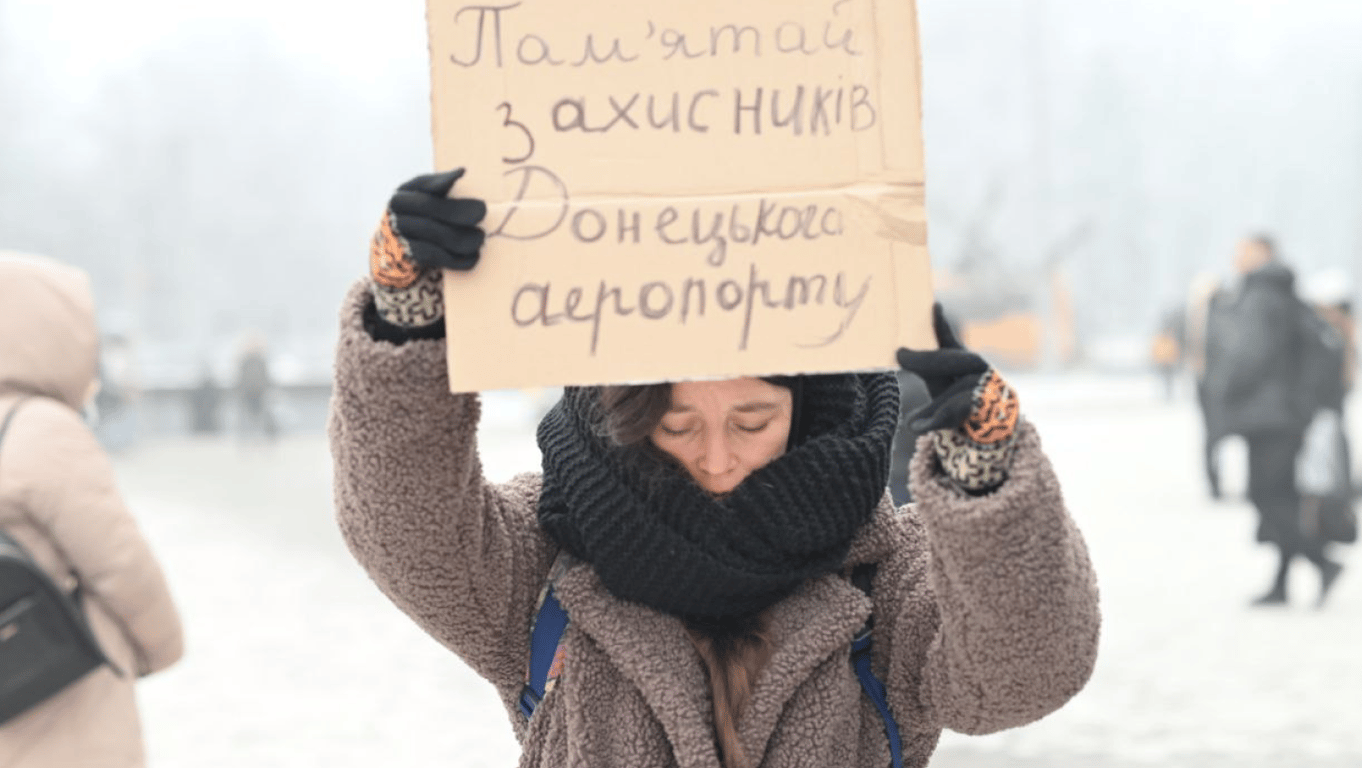 Пам'ятай
захисників
Донецького
аеропорту